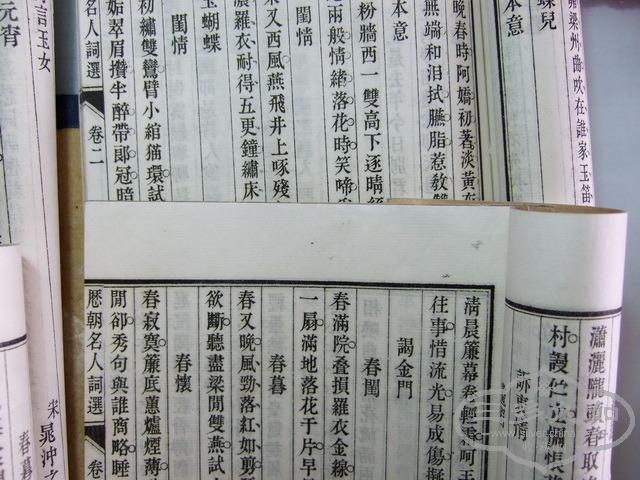 梁州曲吹在誰家玉笛
蝶兒
本意
晚春時阿嬌初著淡黃衣
無端和泪拭臙脂惹教雙
本意
粉牆西一雙高下逐晴絲
兩般情緒落花時笑啼
閨情
又西風燕飛井上啄殘
濃羅衣耐得五更鐘繡床
玉蝴蝶
閨情
初繡雙鸞臂小綰猫環試
姤翠眉攢半醉帶郎冠暗
名人詞選 卷二
言玉女
元宵
瀟灑隴頭春取
村謾伫立惆悵
清晨簾幕卷輕霜呵
往事惜流光易成傷擬
謁金門
春閨
春滿院叠損羅衣金線
一扇滿地落花千片早
春暮
春又晚風勁落紅如剪
欲斷聽盡梁間雙燕試
春懷
春寂寞簾底蕙爐煙薄
閒卻秀句與誰商略睡
歷朝名人詞選 卷
宋 晁沖之
春暮